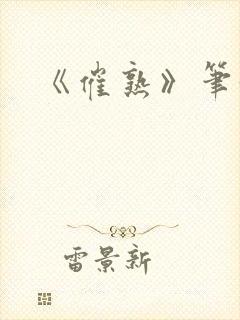 《催熟》筆
雷景新